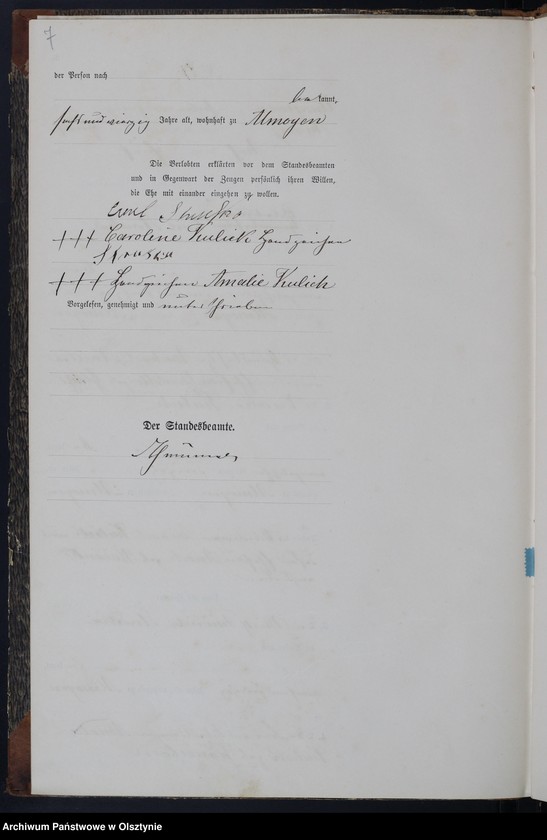 7
der Person nach
be kannt,
sechs und vierzig Jahre alt, wohnhaft zu Almoyen
Die Verlobten erklärten vor dem Standesbeamten
und in Gegenwart der Zeugen persönlich ihren Willen,
die Ehe mit einander eingehen zu wollen.
+++ Caroline Kulick Handzeichen
+++ Handzeichen Amalie Kulick
Vorgelesen, genehmigt und unterschrieben
Der Standesbeamte.
Archiwum Państwowe w Olsztynie